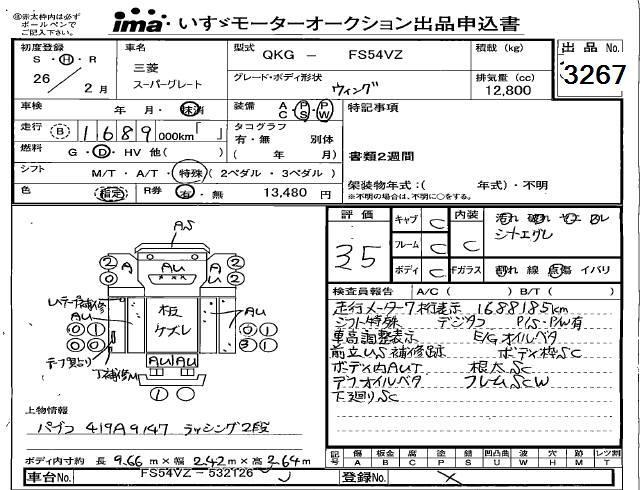 ㊟赤太枠内は必ず
ボールペンで
ご記入下さい。
ima いすゞモーターオークション出品申込書
初度登録 S・H・R 26年 2月
車名 三菱 スーパーグレート
型式 QKG - FS54VZ
グレード・ボディ形状 ウィング
積載 (kg)
排気量 (cc) 12,800
出品No. 3267
車検 年・月・抹消
装備 AC・PS・PW
特記事項
走行 B 1689000km「 」
タコグラフ 有・無 別体 ( 年 月)
燃料 G・D・HV 他( )
書類2週間
シフト M/T・A/T・特殊 (2ペダル・3ペダル)
色 指定 R券 有・無 13,480 円
架装物年式:( 年式)・不明
※不明の場合は、不明に○をする。
評価 3.5
キャブ C
フレーム C
ボディ C
内装 C
汚れ 破れ コゲ スレ
シナエグレ
Fガラス 割れ 線 点傷 イバリ
AS
2 A AU A 2
0 0
Lテープ補修
AU 板 ケズレ AU
0 1 0 1
0 0 3 1
AU AU
1 0
検査員報告 A/C ( ) B/T ( )
走行メーター7桁表示 1688185km
シフト特殊 デジタコ P/S・P/W有
車高調整表示 E/Gオイルベタ
前立US補修跡 ボディ枠SC
ボディ内AUT 根太SC
デフオイルベタ フレームSCW
下廻りSC
上物情報
パブコ 419A9147 ラッシング2段
ボディ内寸約 長 9.66m×幅 2.42m×高 2.64m
記号 傷 A 板金 B 腐 C 塗 P 錆 S 凹凸曲 U 波 W 穴 H 跡 M 汚 T レツ割
車台No. FS54VZ-532126
登録No.